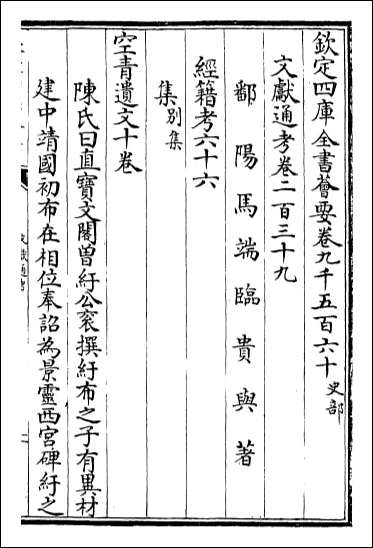 欽定四庫全書薈要卷九千五百六十史部
文獻通考卷二百三十九
鄱陽馬端臨貴與著
經籍考六十六
集別集
空青遺文十卷
陳氏曰直寶文閣曽紆公衮撰紆布之子有異材
建中靖國初布在相位奉詔為景靈西宮碑紆之